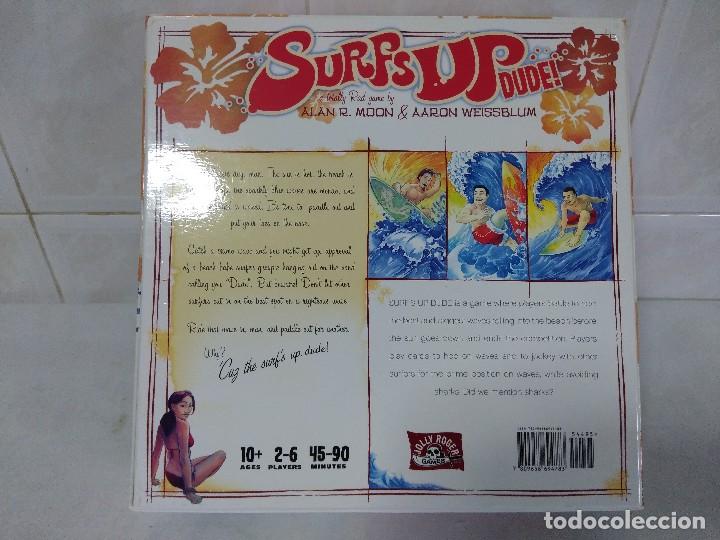 SURFS UP DUDE!
a totally Rad game by
ALAN R. MOON & AARON WEISSBLUM
day, man. The sun is hot, the beach is
the sparkle, the waves are mondo, and
It's time to paddle out and
put your toes on the nose.
Catch a primo wave and you might get an approval
of a beach babe surfer groupie hanging out on the sand
calling you "Dude". But beware! Don't let other
surfers cut in on the best spot on a righteous wave.
Ride that wave in, man, and paddle out for another.
Why?
'Cuz the surf's up, dude!
SURF'S UP DUDE is a game where players
the best and biggest waves rolling into the beach before
the sun goes down and ends the competition. Players
play cards to hop on waves and to jockey with other
surfers for the prime position on waves, while avoiding
sharks. Did we mention sharks?
10+ 2-6 45-90
AGES PLAYERS MINUTES
JOLLY ROGER
GAMES
todocoleccion
todocoleccion.net